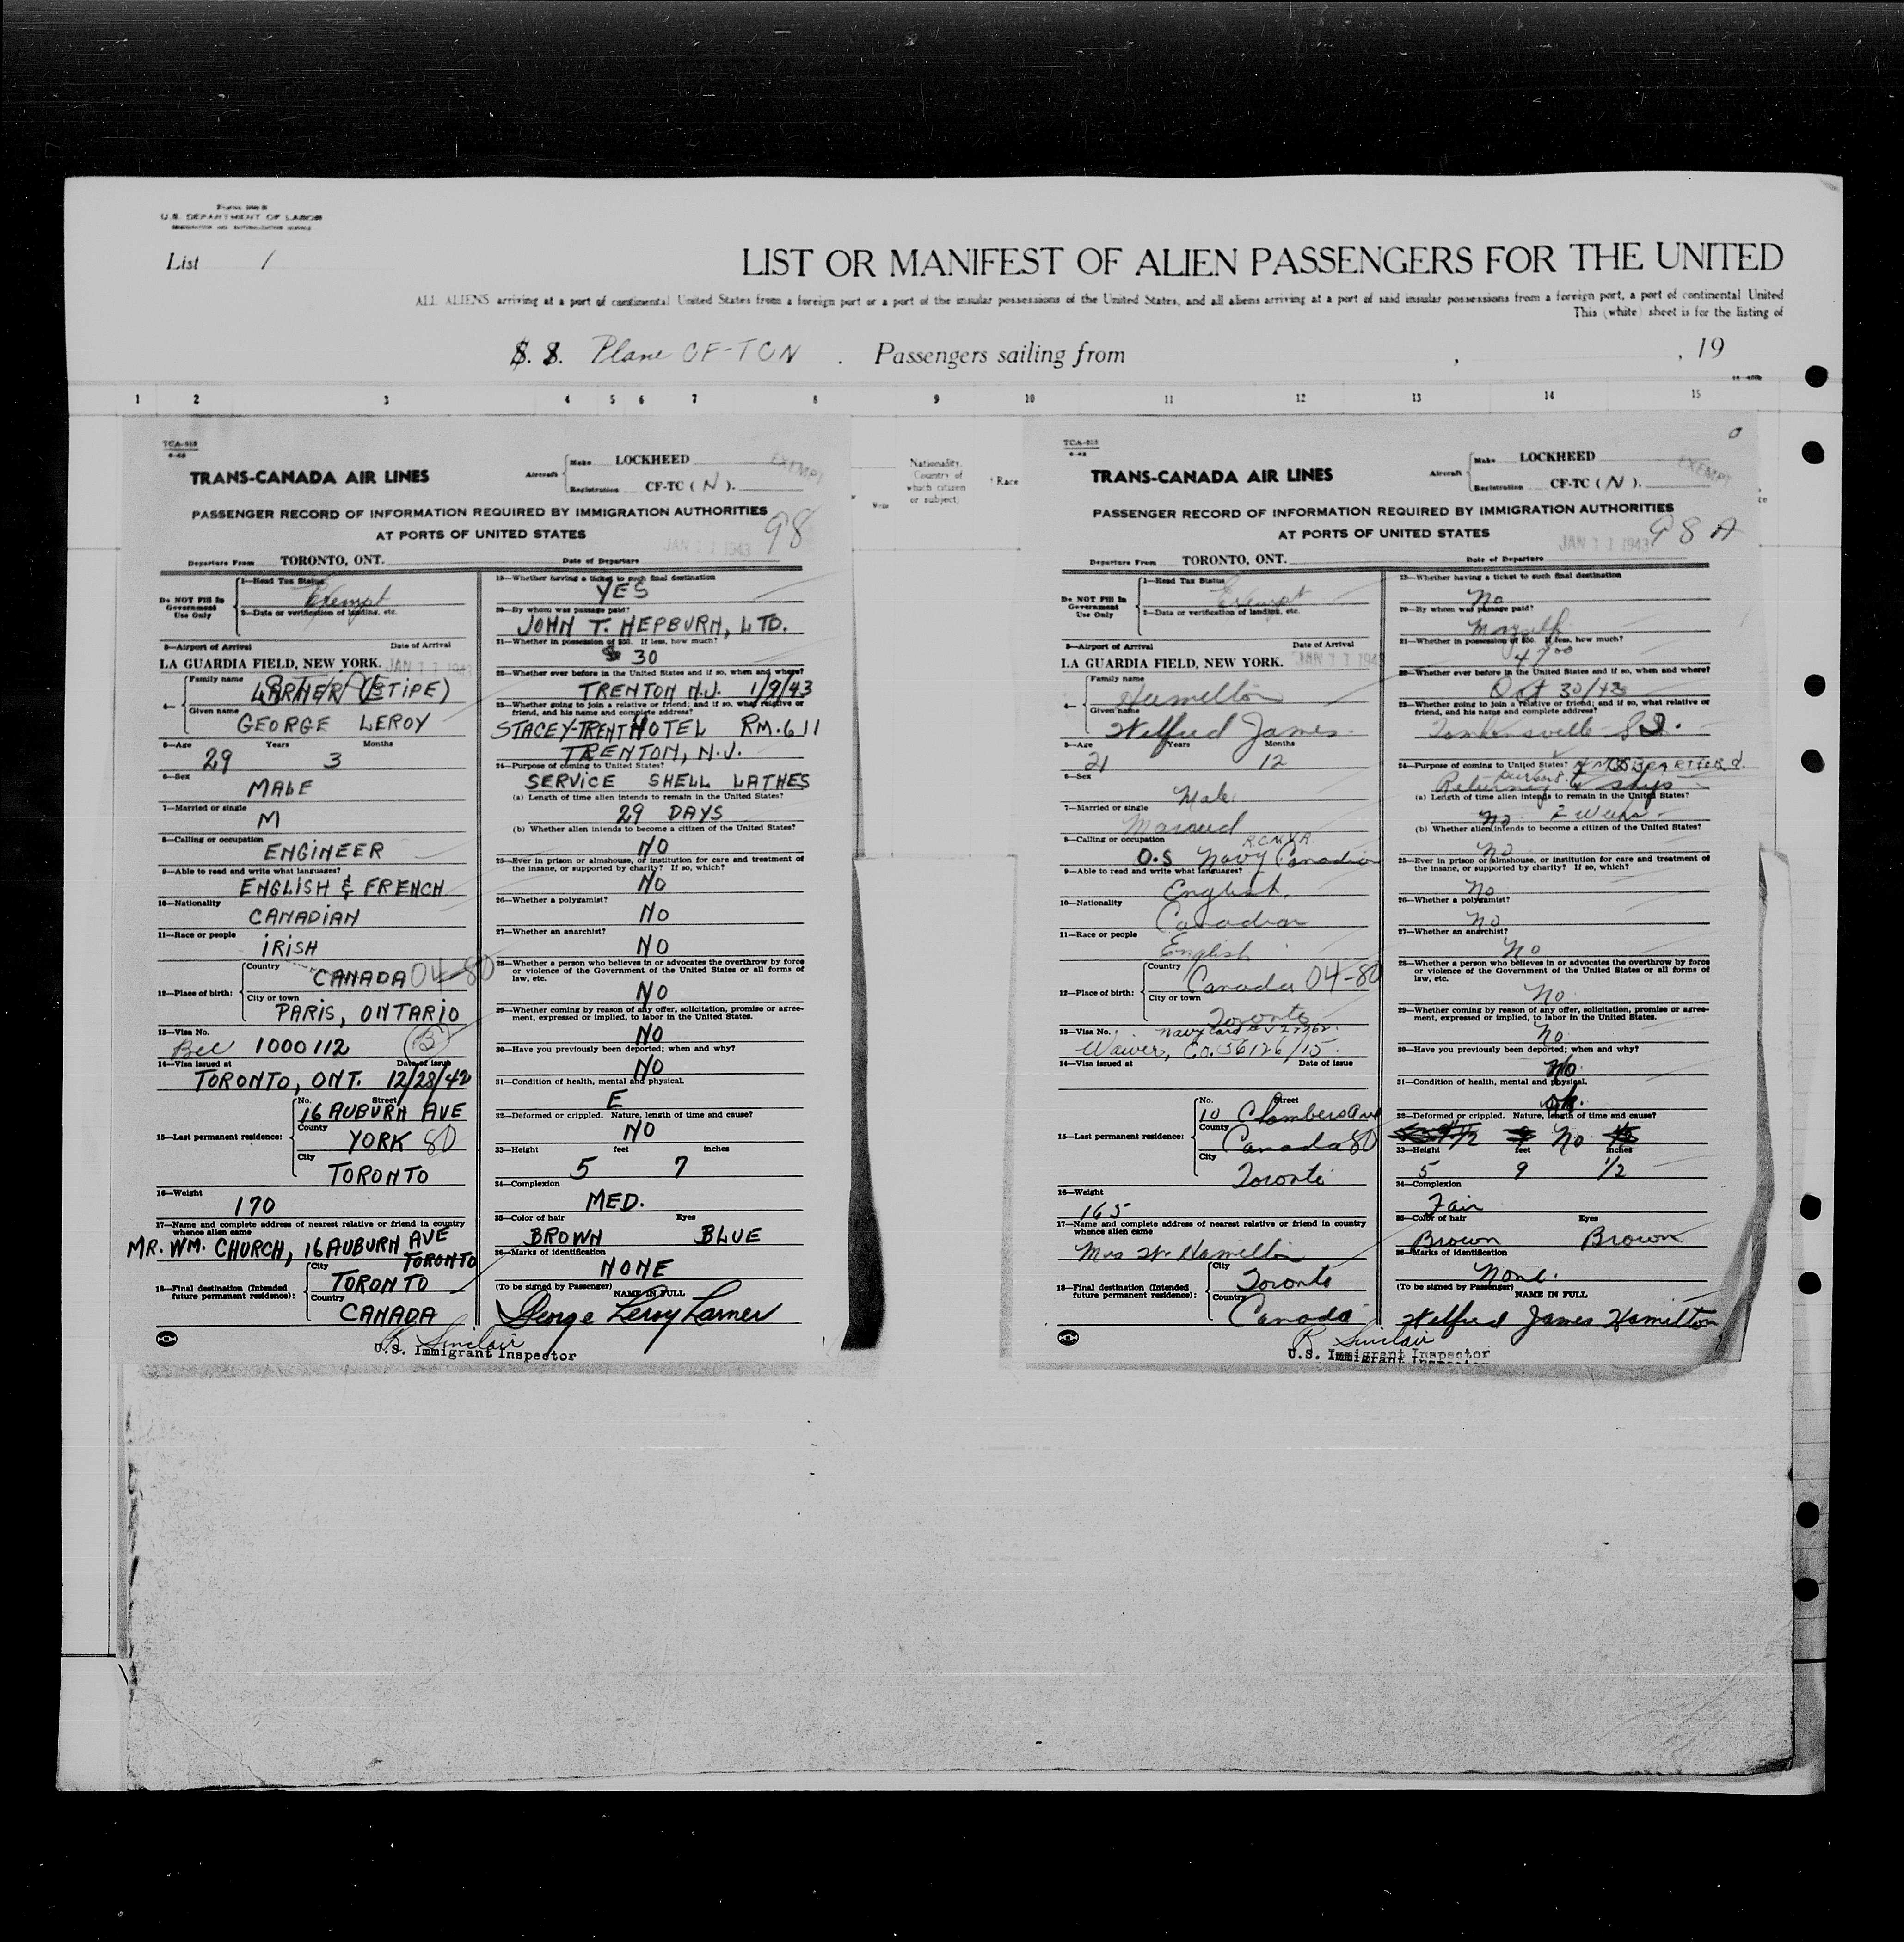 Form 500 B
U.S. DEPARTMENT OF LABOR
IMMIGRATION AND NATURALIZATION SERVICE
List 1
LIST OR MANIFEST OF ALIEN PASSENGERS FOR THE UNITED
ALL ALIENS arriving at a port of continental United States from a foreign port or a port of the insular possessions of the United States, and all aliens arriving at a port of said insular possessions from a foreign port, a port of continental United
This (white) sheet is for the listing of
S. S. Plane CF-TCN . Passengers sailing from , , 19
1 2 3 4 5 6 7 8 9 10 11 12 13 14 15
Nationality.
Country of
which citizen
or subject.
Race
Write
TCA-
TRANS-CANADA AIR LINES
Aircraft
Make LOCKHEED
Registration CF-TC ( N ).
EXEMPT
PASSENGER RECORD OF INFORMATION REQUIRED BY IMMIGRATION AUTHORITIES
AT PORTS OF UNITED STATES
JAN 11 1943
98
Departure From TORONTO, ONT. Date of Departure
Do NOT Fill In
Government
Use Only
1—Head Tax Status
Exempt
2—Data or verification of landing, etc.
3—Airport of Arrival Date of Arrival
LA GUARDIA FIELD, NEW YORK. JAN 11 1943
4— Family name
LARNER (STIPE)
Given name
GEORGE LEROY
5—Age Years Months
29 3
6—Sex
MALE
7—Married or single
M
8—Calling or occupation
ENGINEER
9—Able to read and write what languages?
ENGLISH & FRENCH
10—Nationality
CANADIAN
11—Race or people
IRISH
12—Place of birth:
Country
CANADA 04-80
City or town
PARIS, ONTARIO
13—Visa No.
Bcc 1000112 B
14—Visa issued at Date of issue
TORONTO, ONT. 12/28/42
15—Last permanent residence:
No. Street
16 AUBURN AVE
County
YORK 80
City
TORONTO
16—Weight
170
17—Name and complete address of nearest relative or friend in country
whence alien came
MR. WM. CHURCH, 16 AUBURN AVE
TORONTO
18—Final destination (Intended
future permanent residence):
City
TORONTO
Country
CANADA
19—Whether having a ticket to such final destination
YES
20—By whom was passage paid?
JOHN T. HEPBURN, LTD.
21—Whether in possession of $50. If less, how much?
$ 30
22—Whether ever before in the United States and if so, when and where?
TRENTON N.J. 1/9/43
23—Whether going to join a relative or friend; and if so, what relative or
friend, and his name and complete address?
STACEY-TRENT HOTEL RM. 611
TRENTON, N.J.
24—Purpose of coming to United States?
SERVICE SHELL LATHES
(a) Length of time alien intends to remain in the United States?
29 DAYS
(b) Whether alien intends to become a citizen of the United States?
NO
25—Ever in prison or almshouse, or institution for care and treatment of
the insane, or supported by charity? If so, which?
NO
26—Whether a polygamist?
NO
27—Whether an anarchist?
NO
28—Whether a person who believes in or advocates the overthrow by force
or violence of the Government of the United States or all forms of
law, etc.
NO
29—Whether coming by reason of any offer, solicitation, promise or agree-
ment, expressed or implied, to labor in the United States.
NO
30—Have you previously been deported; when and why?
NO
31—Condition of health, mental and physical.
E
32—Deformed or crippled. Nature, length of time and cause?
NO
33—Height feet inches
5 7
34—Complexion
MED.
35—Color of hair Eyes
BROWN BLUE
36—Marks of identification
NONE
(To be signed by Passenger) NAME IN FULL
George Leroy Larner
R Sinclair
U.S. Immigrant Inspector
TCA-
TRANS-CANADA AIR LINES
Aircraft
Make LOCKHEED
Registration CF-TC ( N ).
EXEMPT
PASSENGER RECORD OF INFORMATION REQUIRED BY IMMIGRATION AUTHORITIES
AT PORTS OF UNITED STATES
JAN 11 1943
98 A
Departure From TORONTO, ONT. Date of Departure
Do NOT Fill In
Government
Use Only
1—Head Tax Status
Exempt
2—Data or verification of landing, etc.
3—Airport of Arrival Date of Arrival
LA GUARDIA FIELD, NEW YORK. JAN 11 194
4— Family name
Hamilton
Given name
Wilfred James
5—Age Years Months
21 12
6—Sex
Male
7—Married or single
Married
8—Calling or occupation
R.C.N.V.R.
O.S Navy Canadian
9—Able to read and write what languages?
English.
10—Nationality
Canadian
11—Race or people
English
12—Place of birth:
Country
Canada 04-80
City or town
Toronto
13—Visa No.
Navy Card # V 27962.
Waiver, Co. 56126/15.
14—Visa issued at Date of issue
15—Last permanent residence:
No. Street
10 Chambers Ave
County
Canada 80
City
Toronto
16—Weight
165
17—Name and complete address of nearest relative or friend in country
whence alien came
Mrs W. Hamilton
18—Final destination (Intended
future permanent residence):
City
Toronto
Country
Canada
19—Whether having a ticket to such final destination
No
20—By whom was passage paid?
Myself
21—Whether in possession of $50. If less, how much?
47 00
22—Whether ever before in the United States and if so, when and where?
Oct 30/42
23—Whether going to join a relative or friend; and if so, what relative or
friend, and his name and complete address?
Tomkinsville S.I.
24—Purpose of coming to United States?
Returning to ships
(a) Length of time alien intends to remain in the United States?
No 2 Weeks.
(b) Whether alien intends to become a citizen of the United States?
No
25—Ever in prison or almshouse, or institution for care and treatment of
the insane, or supported by charity? If so, which?
No
26—Whether a polygamist?
No
27—Whether an anarchist?
No
28—Whether a person who believes in or advocates the overthrow by force
or violence of the Government of the United States or all forms of
law, etc.
No
29—Whether coming by reason of any offer, solicitation, promise or agree-
ment, expressed or implied, to labor in the United States.
No
30—Have you previously been deported; when and why?
No
31—Condition of health, mental and physical.
ok.
32—Deformed or crippled. Nature, length of time and cause?
No
33—Height feet inches
5 9 1/2
34—Complexion
Fair
35—Color of hair Eyes
Brown Brown
36—Marks of identification
None.
(To be signed by Passenger) NAME IN FULL
Wilfred James Hamilton
R Sinclair
U.S. Immigrant Inspector